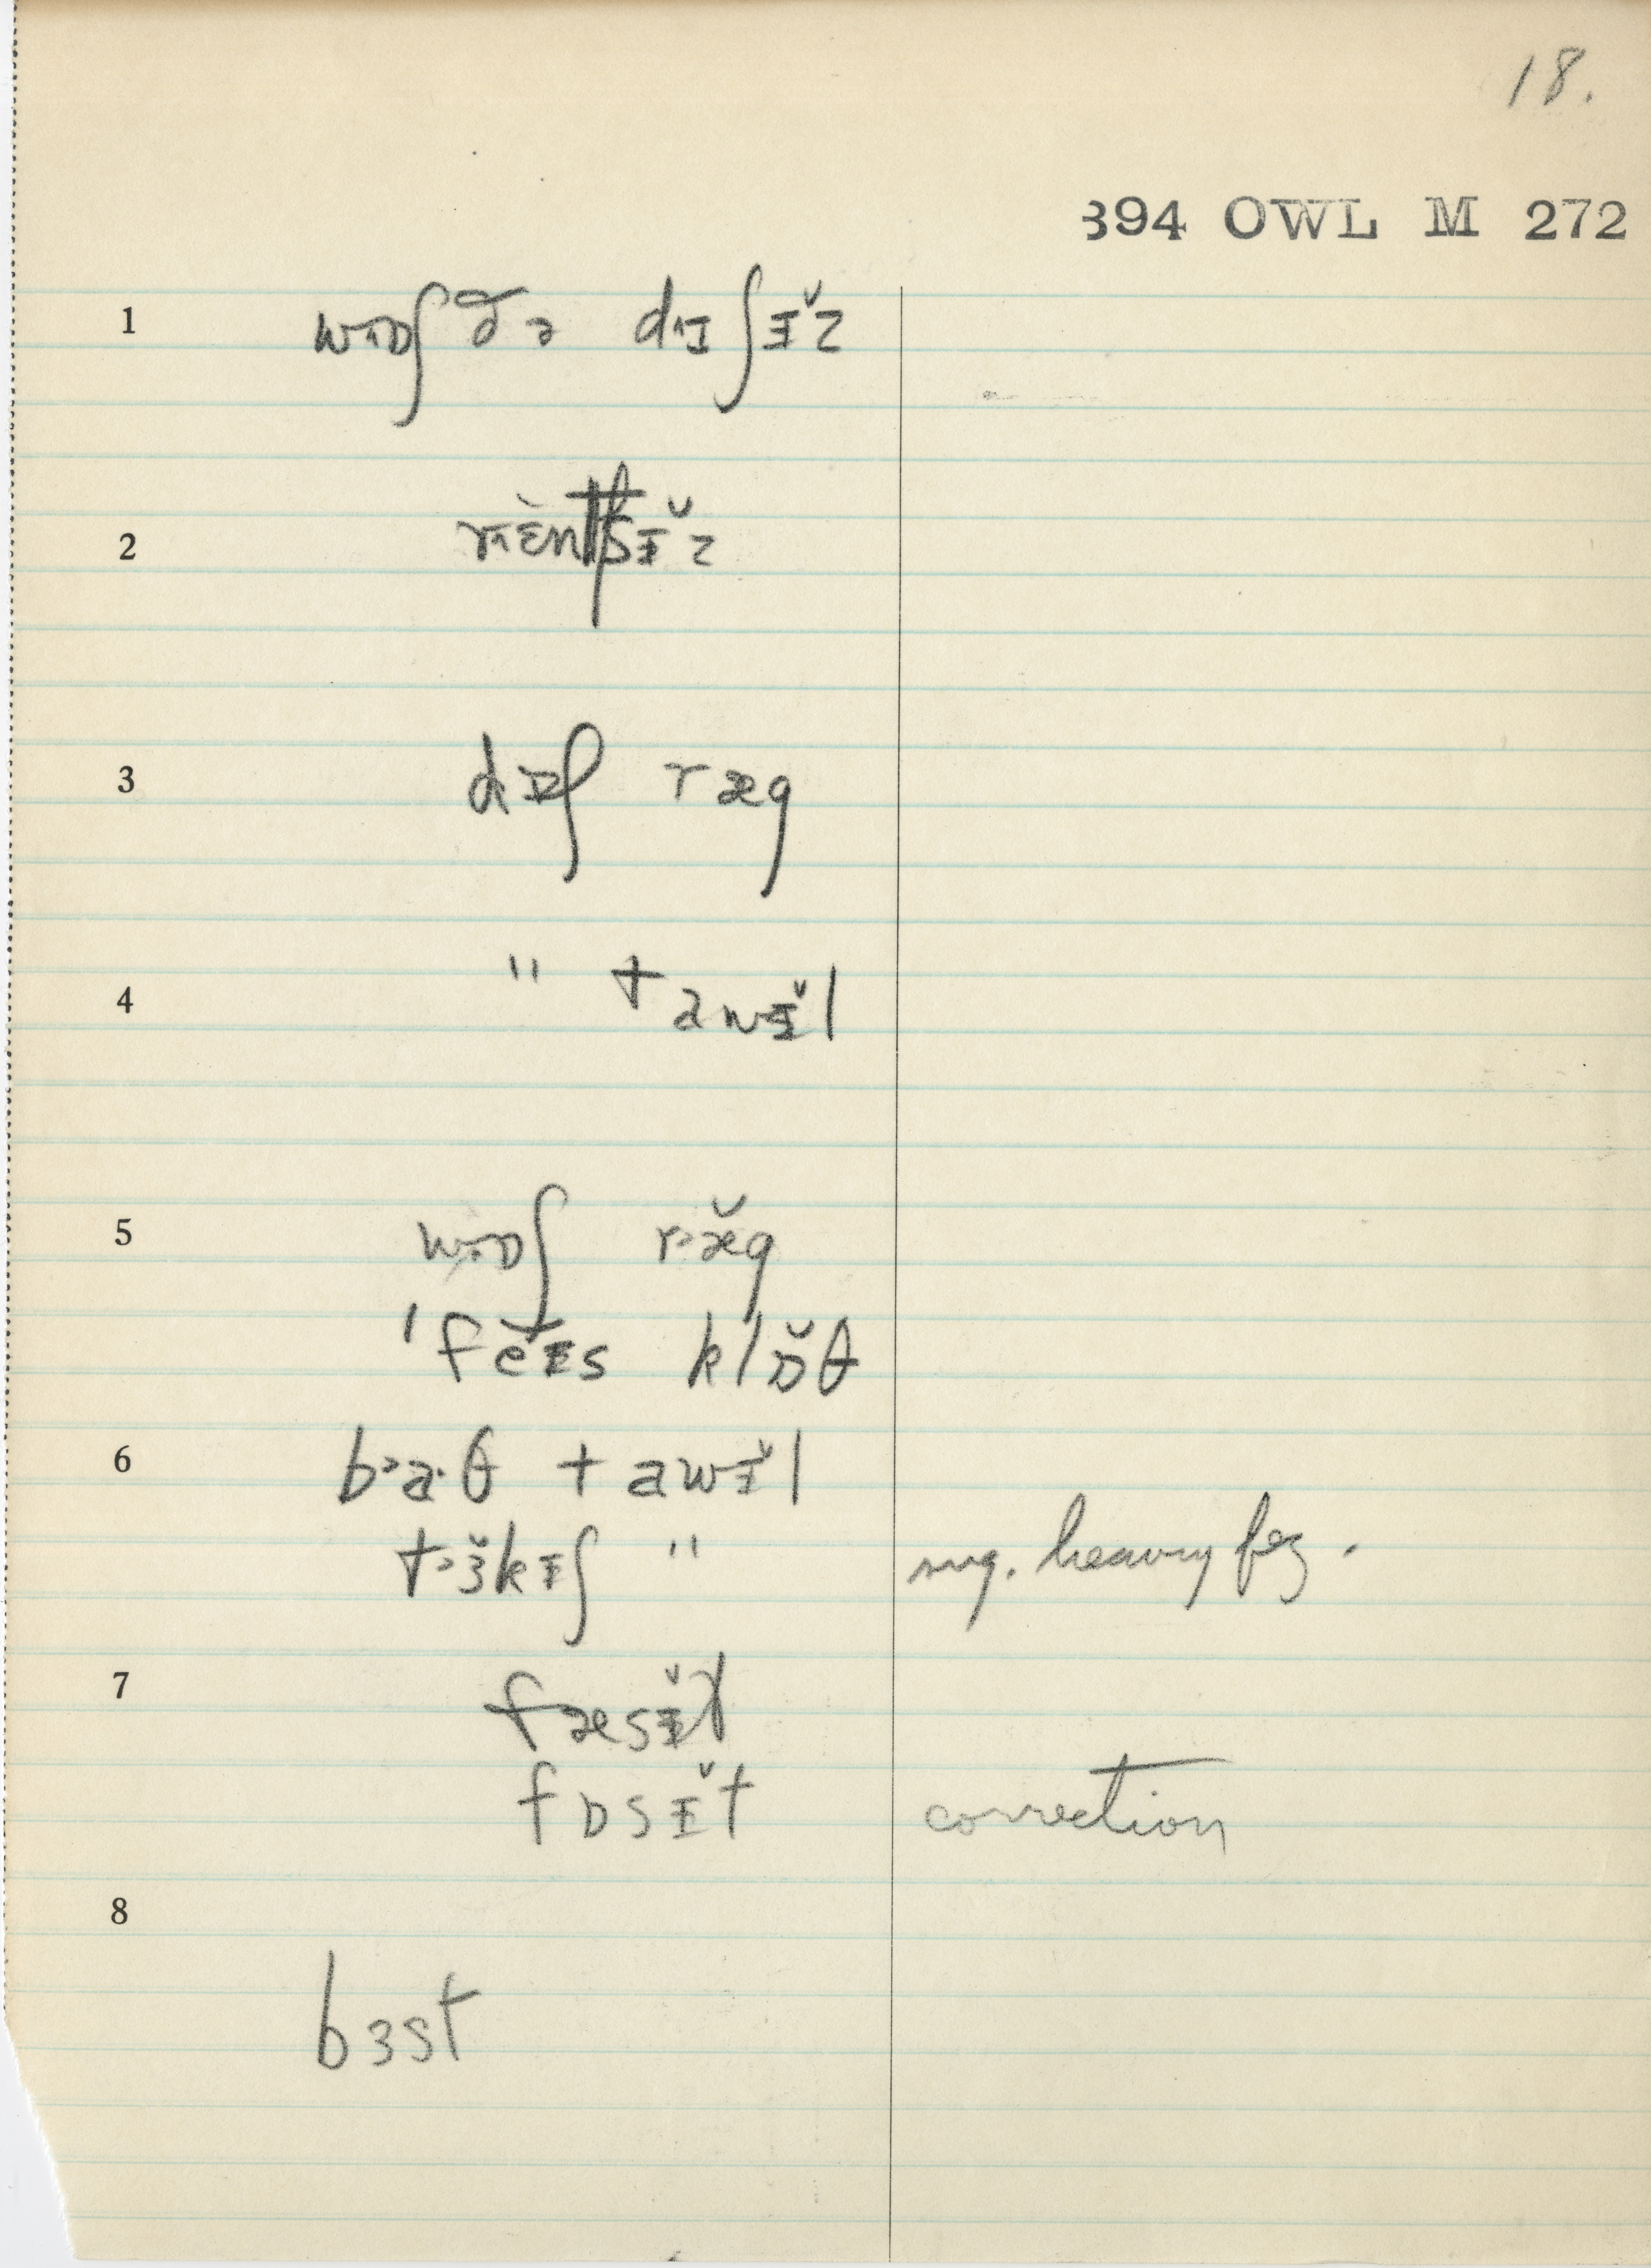 18.
394 OWL M 272
1 wɒʃ ðə dɪʃɨ̆z
2
3 dɒʃ ræg
4 " tawɨ̆l
5 wɒʃ ræ̆g
'feɨs klɒ̆θ
6 b˃a·θ tawɨ̆l
t˃ɜ̆kɨʃ " sug. heavy
7 fæsɨ̆t
fɒsɨ̆t correction
8
bɜst